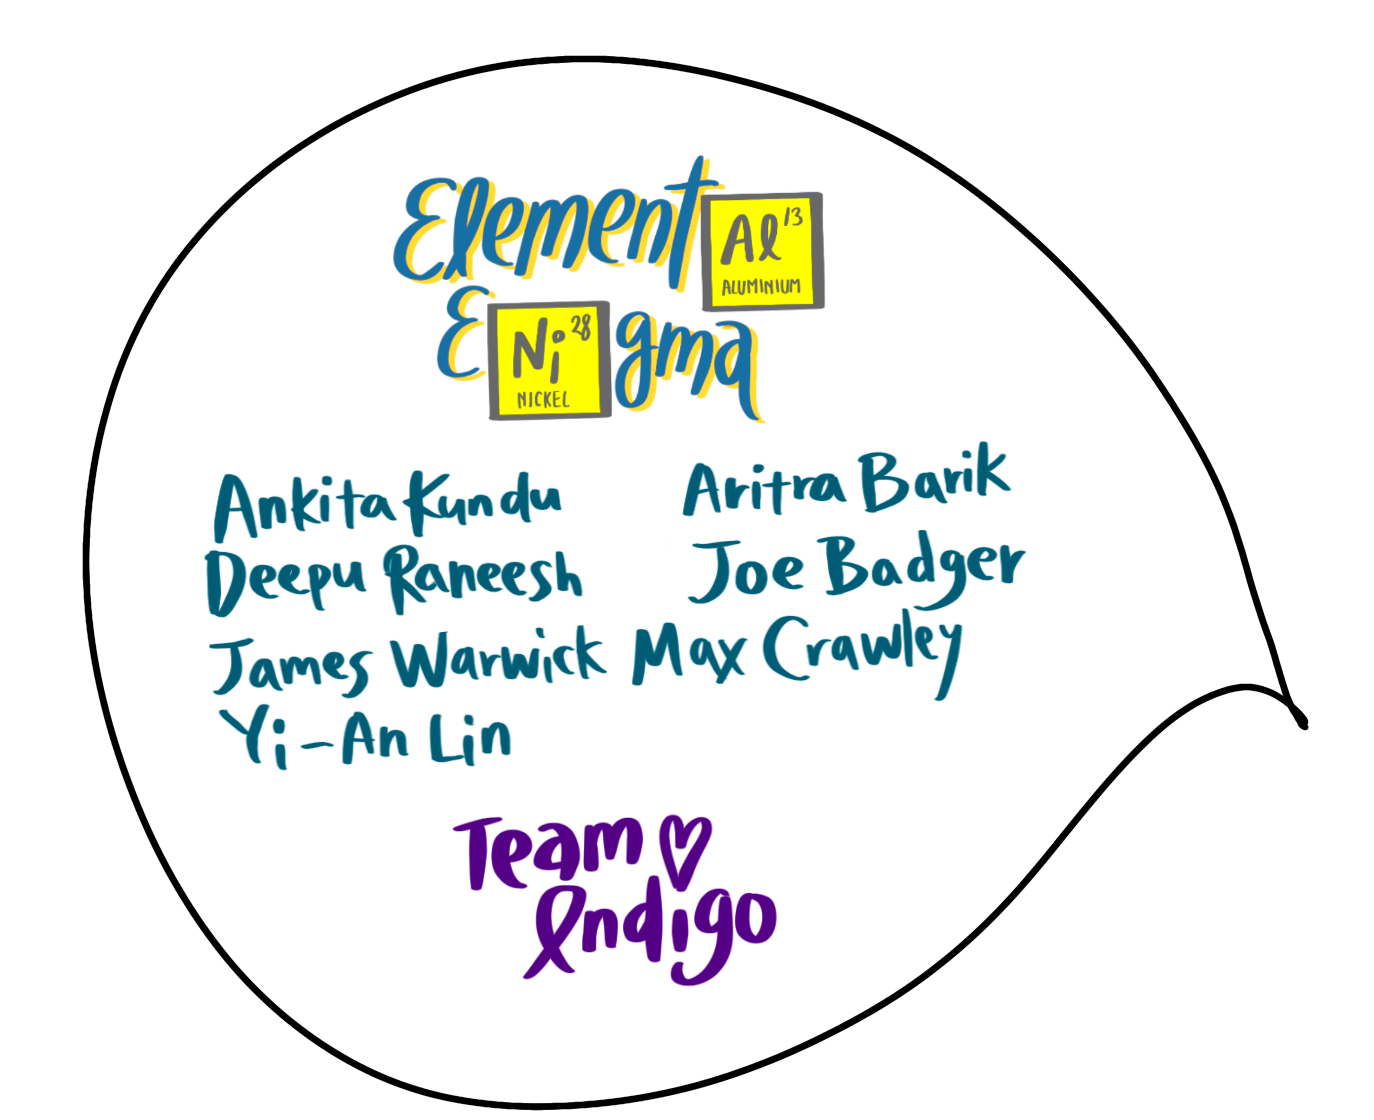 Element Al 13
ALUMINIUM
E Ni 28 gma
NICKEL
Ankita Kundu Aritra Barik
Deepu Raneesh Joe Badger
James Warwick Max Crawley
Yi-An Lin
Team
Indigo